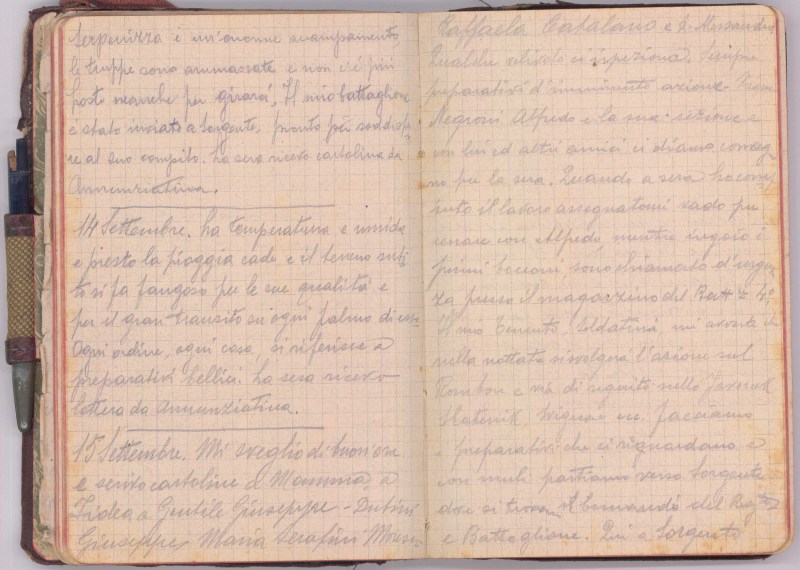 Serpenizza è un'enorme accampamento,
le truppe sono ammassate e non c'è più
posto neanche per girarci. Il mio battaglione
è stato inviato a Sorgente, pronto per soddisfa-
re al suo compito. La sera ricevo cartolina da
Annunziatina.
14 Settembre. La temperatura è umida
e presto la pioggia cade e il terreno subi-
to si fa fangoso per le sue qualità e
per il gran transito su ogni palmo di esso.
Ogni ordine, ogni cosa, si riferisce a
preparativi bellici. La sera ricevo
lettera da Annunziatina.
15 Settembre. Mi sveglio di buon'ora
e scrivo cartoline a Mamma, a
a Gentile Giuseppe - Dutini
Giuseppe, Maria Serafini
Raffaela Catalano e D'Alessandro
Qualche velivolo ci ispeziona. Sempre
preparativi d'imminente azione.
Negroni Alfredo e la sua sezione e
con lui ed altri amici ci diamo conveg-
no per la sera. Quando a sera ho comp-
iuto il lavoro assegnatomi vado per
cenare con Alfredo, mentre ingoio i
primi bocconi sono chiamato d'urgen-
za presso il magazzino del Batt.
Il mio Tenente, Soldatini, mi avvisa che
nella nottata si svolgerà l'azione sul
Rombon e via di seguito nello Javorcek
ecc. Facciamo
i preparativi che ci riguardano e
con muli partiamo verso Sorgente
dove si trova il Comando del Regto
e Battaglione. Qui a Sorgente